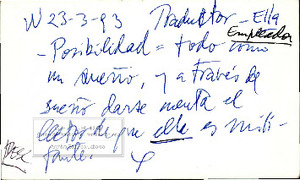 W 23-3-93 Traductor - Ella
Empleados
- Posibilidad = todo como
un sueño, y a través de
sueño darse cuenta el
lector de que ella es mili-
tante.